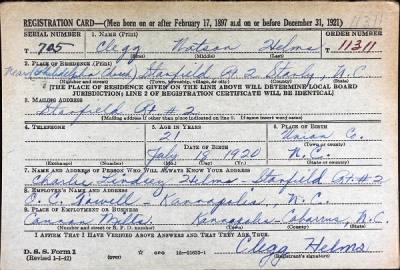 REGISTRATION CARD—(Men born on or after February 17, 1897 and on or before December 31, 1921)
SERIAL NUMBER
1. NAME (Print)
ORDER NUMBER
T 705
Clegg Watson Helms
11311
(First) (Middle) (Last)
2. PLACE OF RESIDENCE (Print)
Starfield Rt. 2 Stanly, N.C.
(Number and street) (Town, township, village, or city) (County) (State)
[THE PLACE OF RESIDENCE GIVEN ON THE LINE ABOVE WILL DETERMINE LOCAL BOARD
JURISDICTION; LINE 2 OF REGISTRATION CERTIFICATE WILL BE IDENTICAL]
3. MAILING ADDRESS
Stanfield Rt # 2
[Mailing address if other than place indicated on line 2. If same insert word same]
4. TELEPHONE
5. AGE IN YEARS
6. PLACE OF BIRTH
21
Union Co.
DATE OF BIRTH
(Town or county)
July 18 1920
N.C.
(Exchange) (Number)
(Mo.) (Day) (Yr.)
(State or country)
7. NAME AND ADDRESS OF PERSON WHO WILL ALWAYS KNOW YOUR ADDRESS
Charlie Lindsey Helms - Stanfield Rt. # 2
8. EMPLOYER'S NAME AND ADDRESS
Kannapolis, N.C.
9. PLACE OF EMPLOYMENT OR BUSINESS
Cannon Mills Kannapolis - Cabarrus, N.C.
(Number and street or R. F. D. number) (Town) (County) (State)
I AFFIRM THAT I HAVE VERIFIED ABOVE ANSWERS AND THAT THEY ARE TRUE.
D. S. S. Form 1
(Revised 1-1-42) (over)
Clegg Helms
(Registrant's signature)